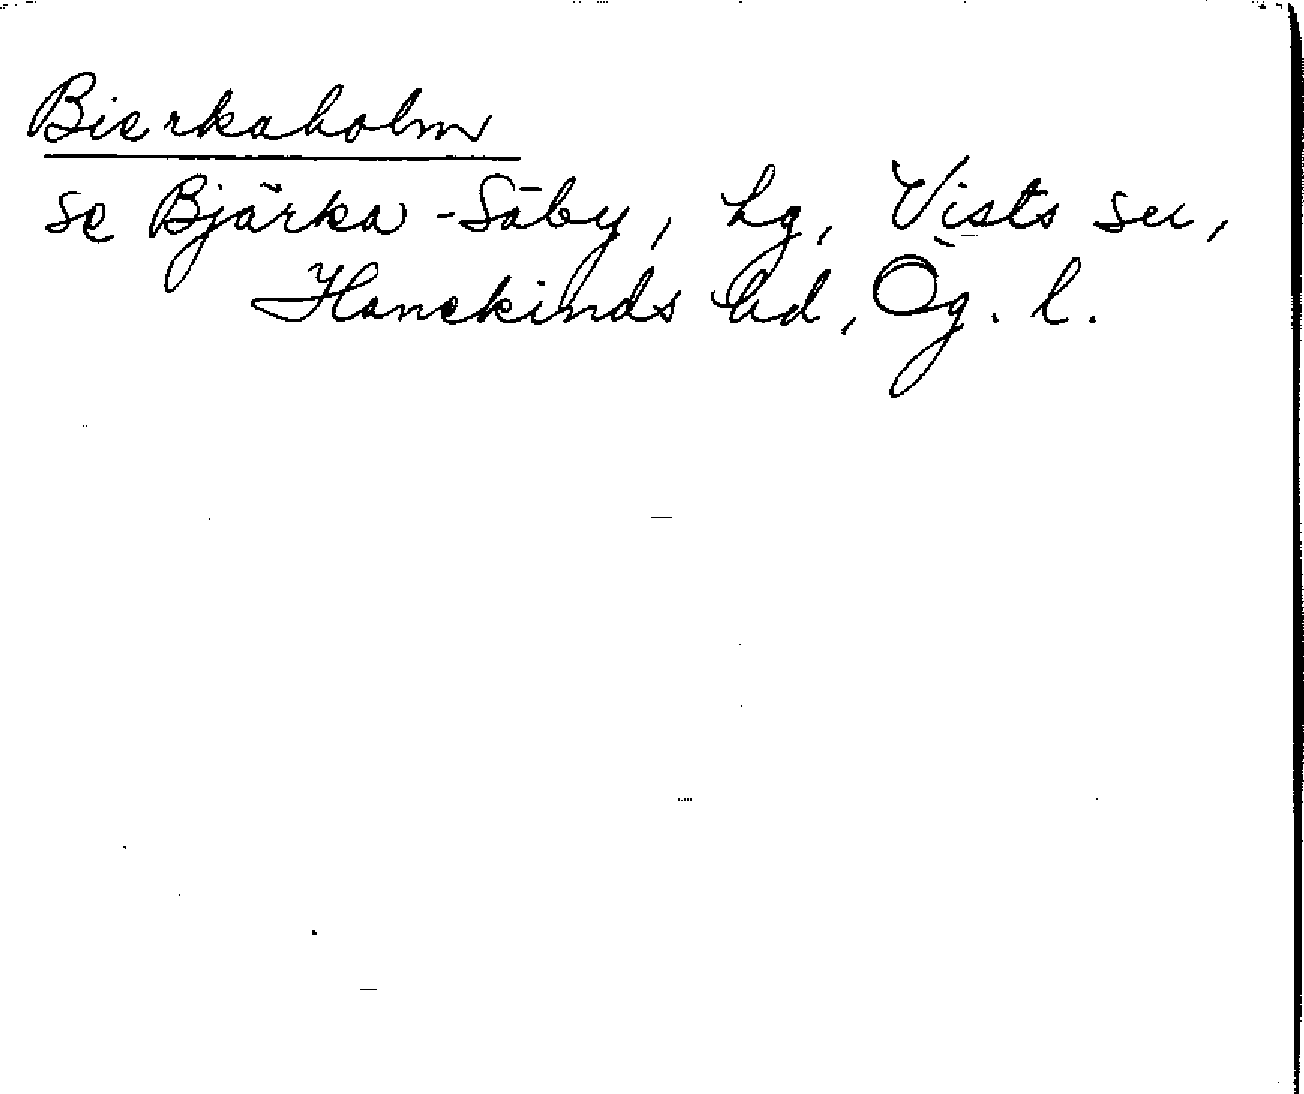 Bierkaholm
se Bjärka-Säby, hg, Vists sn,
Hanekinds hd, Ög. l.